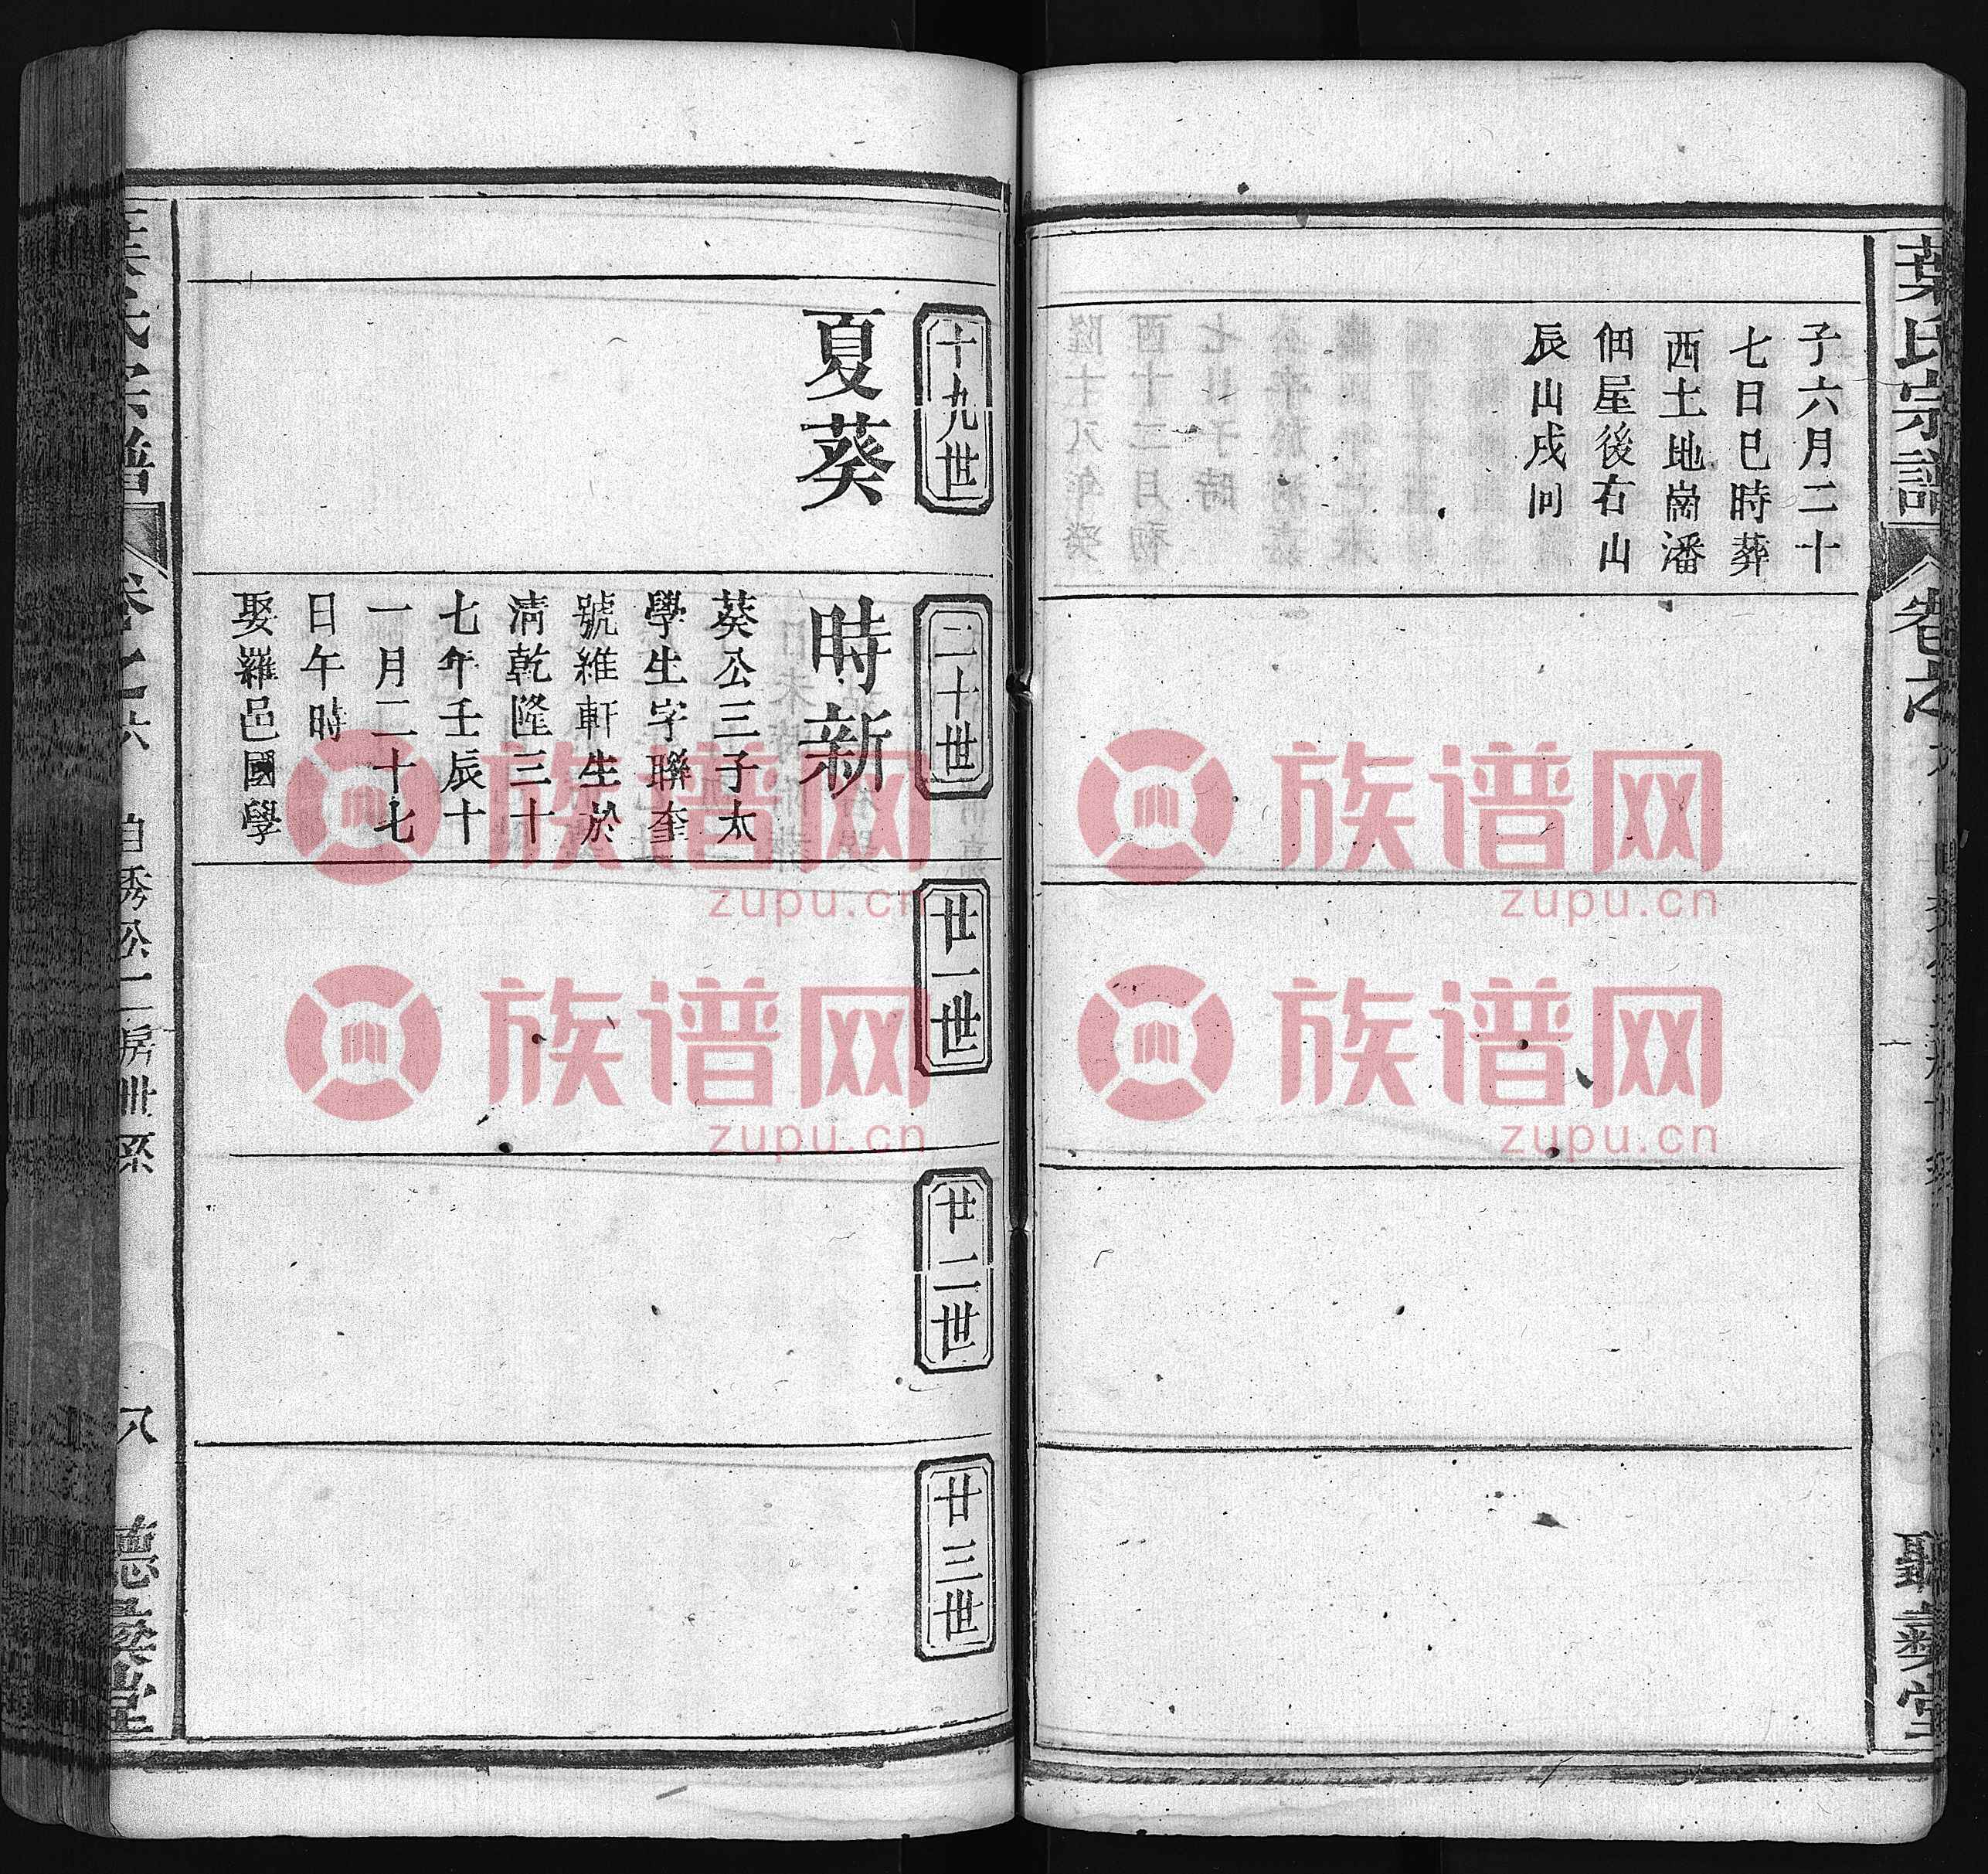 葉氏宗譜
卷之六
子六月二十
七日巳時葬
西土地崗潘
佃屋後右山
辰山戌向
十九世
夏葵
二十世
時新
葵公三子太
學生字聯奎
號維軒生於
淸乾隆三十
七年壬辰十
一月二十七
日午時
娶羅邑國學
廿一世
廿二世
廿三世
葉氏宗譜
卷之六
秀公二房世系
八
族谱网
zupu.cn
族谱网
zupu.cn
族谱网
zupu.cn
族谱网
zupu.cn